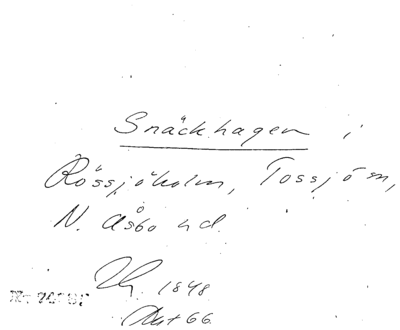 Snäckhagen i
Rössjöholm, Tossjö sn,
N. Åsbo hd.
1848
Akt 66